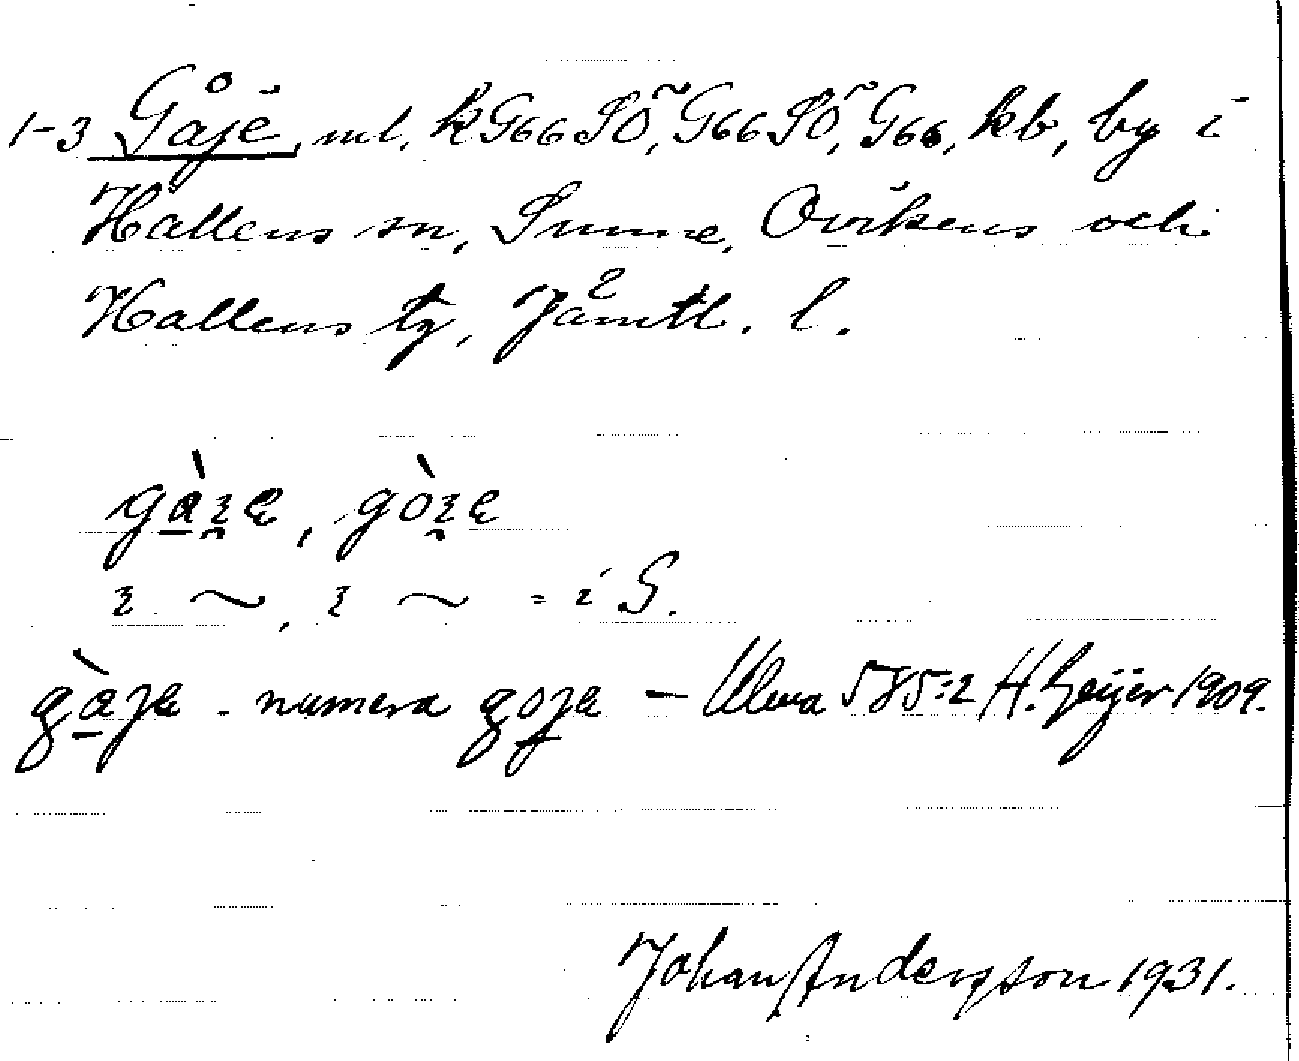 1-3 Gåje, ml, kG66SÖ, G66SÖ, G66, kb, by i
Hallens sn, Sunne, Ovikens och
Hallens tg, Jämtl. l.
gàʒe, gòʒe
ʒ ~, ʒ ~ = i S.
gàje - numera goje - Ulma 585:2 H. Geijer 1909.
Johan Anderson 1931.